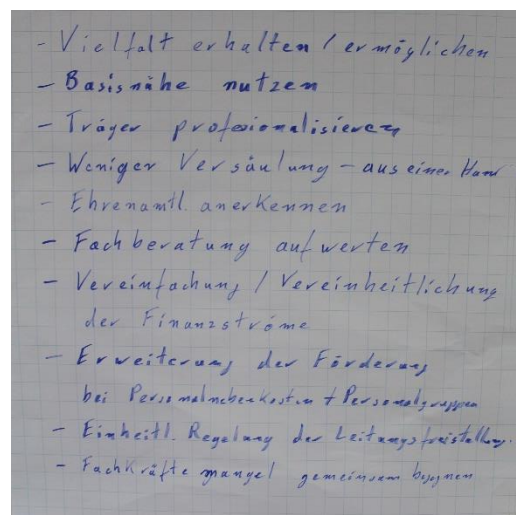 - Vielfalt erhalten / ermöglichen
- Basisnähe nutzen
- Träger profesionalisieren
- Weniger Versäulung - aus einer Hand
- Ehrenamtl. anerkennen
- Fachberatung aufwerten
- Vereinfachung / Vereinheitlichung
der Finanzströme
- Erweiterung der Förderung
bei Personalnebenkosten + Personalgruppen
- Einheitl. Regelung der Leitungsfreistellung.
- Fachkräftemangel gemeinsam begegnen